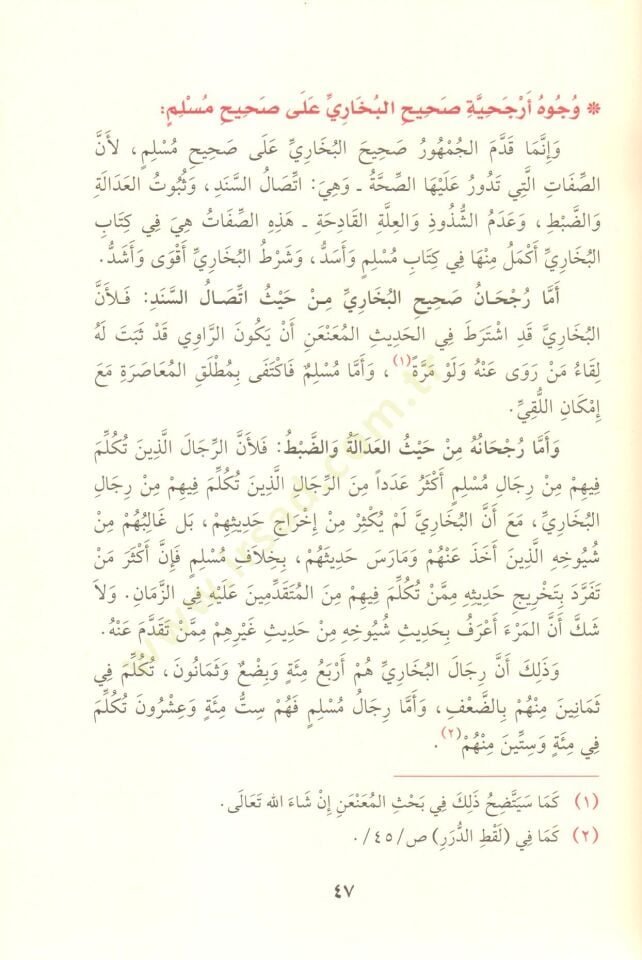 * وُجُوهُ أَرْجَحِيَّةِ صَحِيحِ البُخَارِيِّ عَلَى صَحِيحِ مُسْلِمٍ:
وَإِنَّمَا قَدَّمَ الجُمْهُورُ صَحِيحَ البُخَارِيِّ عَلَى صَحِيحِ مُسْلِمٍ، لأَنَّ
الصِّفَاتِ الَّتِي تَدُورُ عَلَيْهَا الصِّحَّةُ ـ وَهِيَ: اتِّصَالُ السَّنَدِ، وَثُبُوتُ العَدَالَةِ
وَالضَّبْطِ، وَعَدَمُ الشُّذُوذِ وَالعِلَّةِ القَادِحَةِ ـ هَذِهِ الصِّفَاتُ هِيَ فِي كِتَابِ
البُخَارِيِّ أَكْمَلُ مِنْهَا فِي كِتَابِ مُسْلِمٍ وَأَسَدُّ، وَشَرْطُ البُخَارِيِّ أَقْوَى وَأَشَدُّ.
أَمَّا رُجْحَانُ صَحِيحِ البُخَارِيِّ مِنْ حَيْثُ اتِّصَالُ السَّنَدِ: فَلأَنَّ
البُخَارِيَّ قَدِ اشْتَرَطَ فِي الحَدِيثِ المُعَنْعَنِ أَنْ يَكُونَ الرَّاوِي قَدْ ثَبَتَ لَهُ
لِقَاءُ مَنْ رَوَى عَنْهُ وَلَوْ مَرَّةً(١)، وَأَمَّا مُسْلِمٌ فَاكْتَفَى بِمُطْلَقِ المُعَاصَرَةِ مَعَ
إِمْكَانِ اللُّقِيِّ.
وَأَمَّا رُجْحَانُهُ مِنْ حَيْثُ العَدَالَةُ وَالضَّبْطُ: فَلأَنَّ الرِّجَالَ الَّذِينَ تُكُلِّمَ
فِيهِمْ مِنْ رِجَالِ مُسْلِمٍ أَكْثَرُ عَدَداً مِنَ الرِّجَالِ الَّذِينَ تُكُلِّمَ فِيهِمْ مِنْ رِجَالِ
البُخَارِيِّ، مَعَ أَنَّ البُخَارِيَّ لَمْ يُكْثِرْ مِنْ إِخْرَاجِ حَدِيثِهِمْ، بَل غَالِبُهُمْ مِنْ
شُيُوخِهِ الَّذِينَ أَخَذَ عَنْهُمْ وَمَارَسَ حَدِيثَهُمْ، بِخِلَافِ مُسْلِمٍ فَإِنَّ أَكْثَرَ مَنْ
تَفَرَّدَ بِتَخْرِيجِ حَدِيثِهِ مِمَّنْ تُكُلِّمَ فِيهِمْ مِنَ المُتَقَدِّمِينَ عَلَيْهِ فِي الزَّمَانِ. وَلَا
شَكَّ أَنَّ المَرْءَ أَعْرَفُ بِحَدِيثِ شُيُوخِهِ مِنْ حَدِيثِ غَيْرِهِمْ مِمَّنْ تَقَدَّمَ عَنْهُ.
وَذَلِكَ أَنَّ رِجَالَ البُخَارِيِّ هُمْ أَرْبَعُ مِئَةٍ وَبِضْعٌ وَثَمَانُونَ، تُكُلِّمَ فِي
ثَمَانِينَ مِنْهُمْ بِالضَّعْفِ، وَأَمَّا رِجَالُ مُسْلِمٍ فَهُمْ سِتُّ مِئَةٍ وَعِشْرُونَ تُكُلِّمَ
فِي مِئَةٍ وَسِتِّينَ مِنْهُمْ(٢).
(١) كَمَا سَيَتَّضِحُ ذَلِكَ فِي بَحْثِ المُعَنْعَنِ إِنْ شَاءَ الله تَعَالَى.
(٢) كَمَا فِي (لَقْطِ الدُّرَرِ) ص/٤٥/.
٤٧